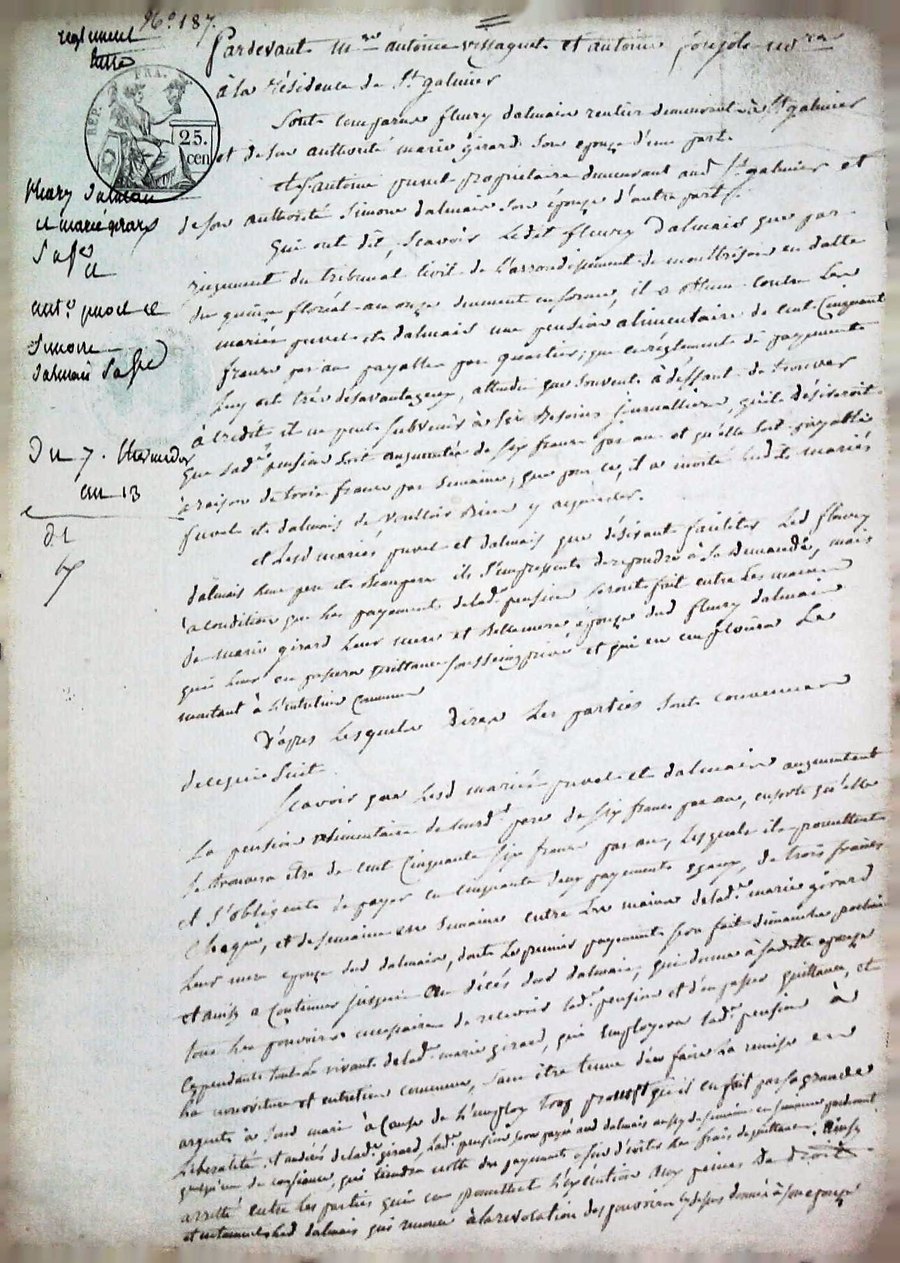 N.° 187.
règlement
entre
REP. FRA.
25.
cen
fleury Dalmais
et marie girard
Sa fe
et
ant.e puvel et
Simone
Dalmais Sa fe
Du 7. thermidor
an 13
Pardevant M.re antoine et antoine nores
à la résidence de St. galmier
Sont comparus fleury dalmais rentier demeurant à St. galmier
et de son authorité marie girard son épouse d'une part.
et Sr. antoine puvel propriétaire demeurant aud. St. galmier et
de son authorité Simone dalmais son épouse d'autre part.
Qui ont dit, Scavoir Ledit fleury Dalmais que par
jugement du tribunal Civil de l'arrondissement de montbrison en datte
du quinze floréal an onze dument en forme, il a obtenu contre Les
mariés puvel et dalmais une pension alimentaire de cent Cinquante
francs par an payable par quartier; que ce réglement de payement
Luy est très désavantageux, attendu que souvent à deffaut de trouver
à crédit il ne peut subvenir à ses Besoins journalliers, qu'il désireroit
que lad.e pension soit augmentée de Six francs par an et qu'elle soit payable
à raison de trois francs par semaine, que pour ce, il a invité lesdits mariés
puvel et dalmais de vouloir Bien y acquiescer.
et Lesd. mariés puvel et dalmais que désirant faciliter Led. fleury
dalmais leur père et Beaupère ils s'empressent de répondre à Sa demande, mais
à condition que les payements de lad.e pension seront fait entre Les mains
de marie girard Leur mère et Bellemère épouse dud. fleury dalmais
qui Leur en passera quittance sousseing privé et qui en employera Le
montant à L'entretien Commun
D'après Lesquels dires Les parties sont convenues
de ce qui suit.
Scavoir que Lesd. mariés puvel et dalmais augmentent
La pension alimentaire de leurd. père de six francs par an, ensorte qu'elle
se trouvera être de cent Cinquante Six francs par an, Lesquels ils promettent
et s'obligent de payer en cinquante deux payements égaux, de trois francs
chaque, et de semaine en Semaine entre Les mains de lad.e marie girard
Leur mère épouse dud. dalmais, dont Le premier payement sera fait dimanche prochain
et ainsy à Continuer jusques au décès dud. dalmais, qui donne à Saditte épouse
tous Les pouvoirs nécessaires de recevoir lad.e pension et d'en passer quittance, et
Cependant tout Le vivant de lad.e marie girard, qui employera lad.e pension à
La nourriture et entretien commun, sans être tenue d'en faire La remise en
argent à Sond. mari à Cause de L'employ trop prompt qu'il en fait par sa grande
Libéralité, et au décès de lad.e girard, lad.e pension sera payée aud. dalmais aussy de semaine en semaine par
quelqu'un de confiance, qui tiendra notte des payements afin d'éviter les frais de quittance. Ainsy
arretté entre Les parties qui en promettent L'exécution aux peines de droit
et Led. dalmais qui renonce à la révocation des pouvoirs cy dessus donnés à son épouse